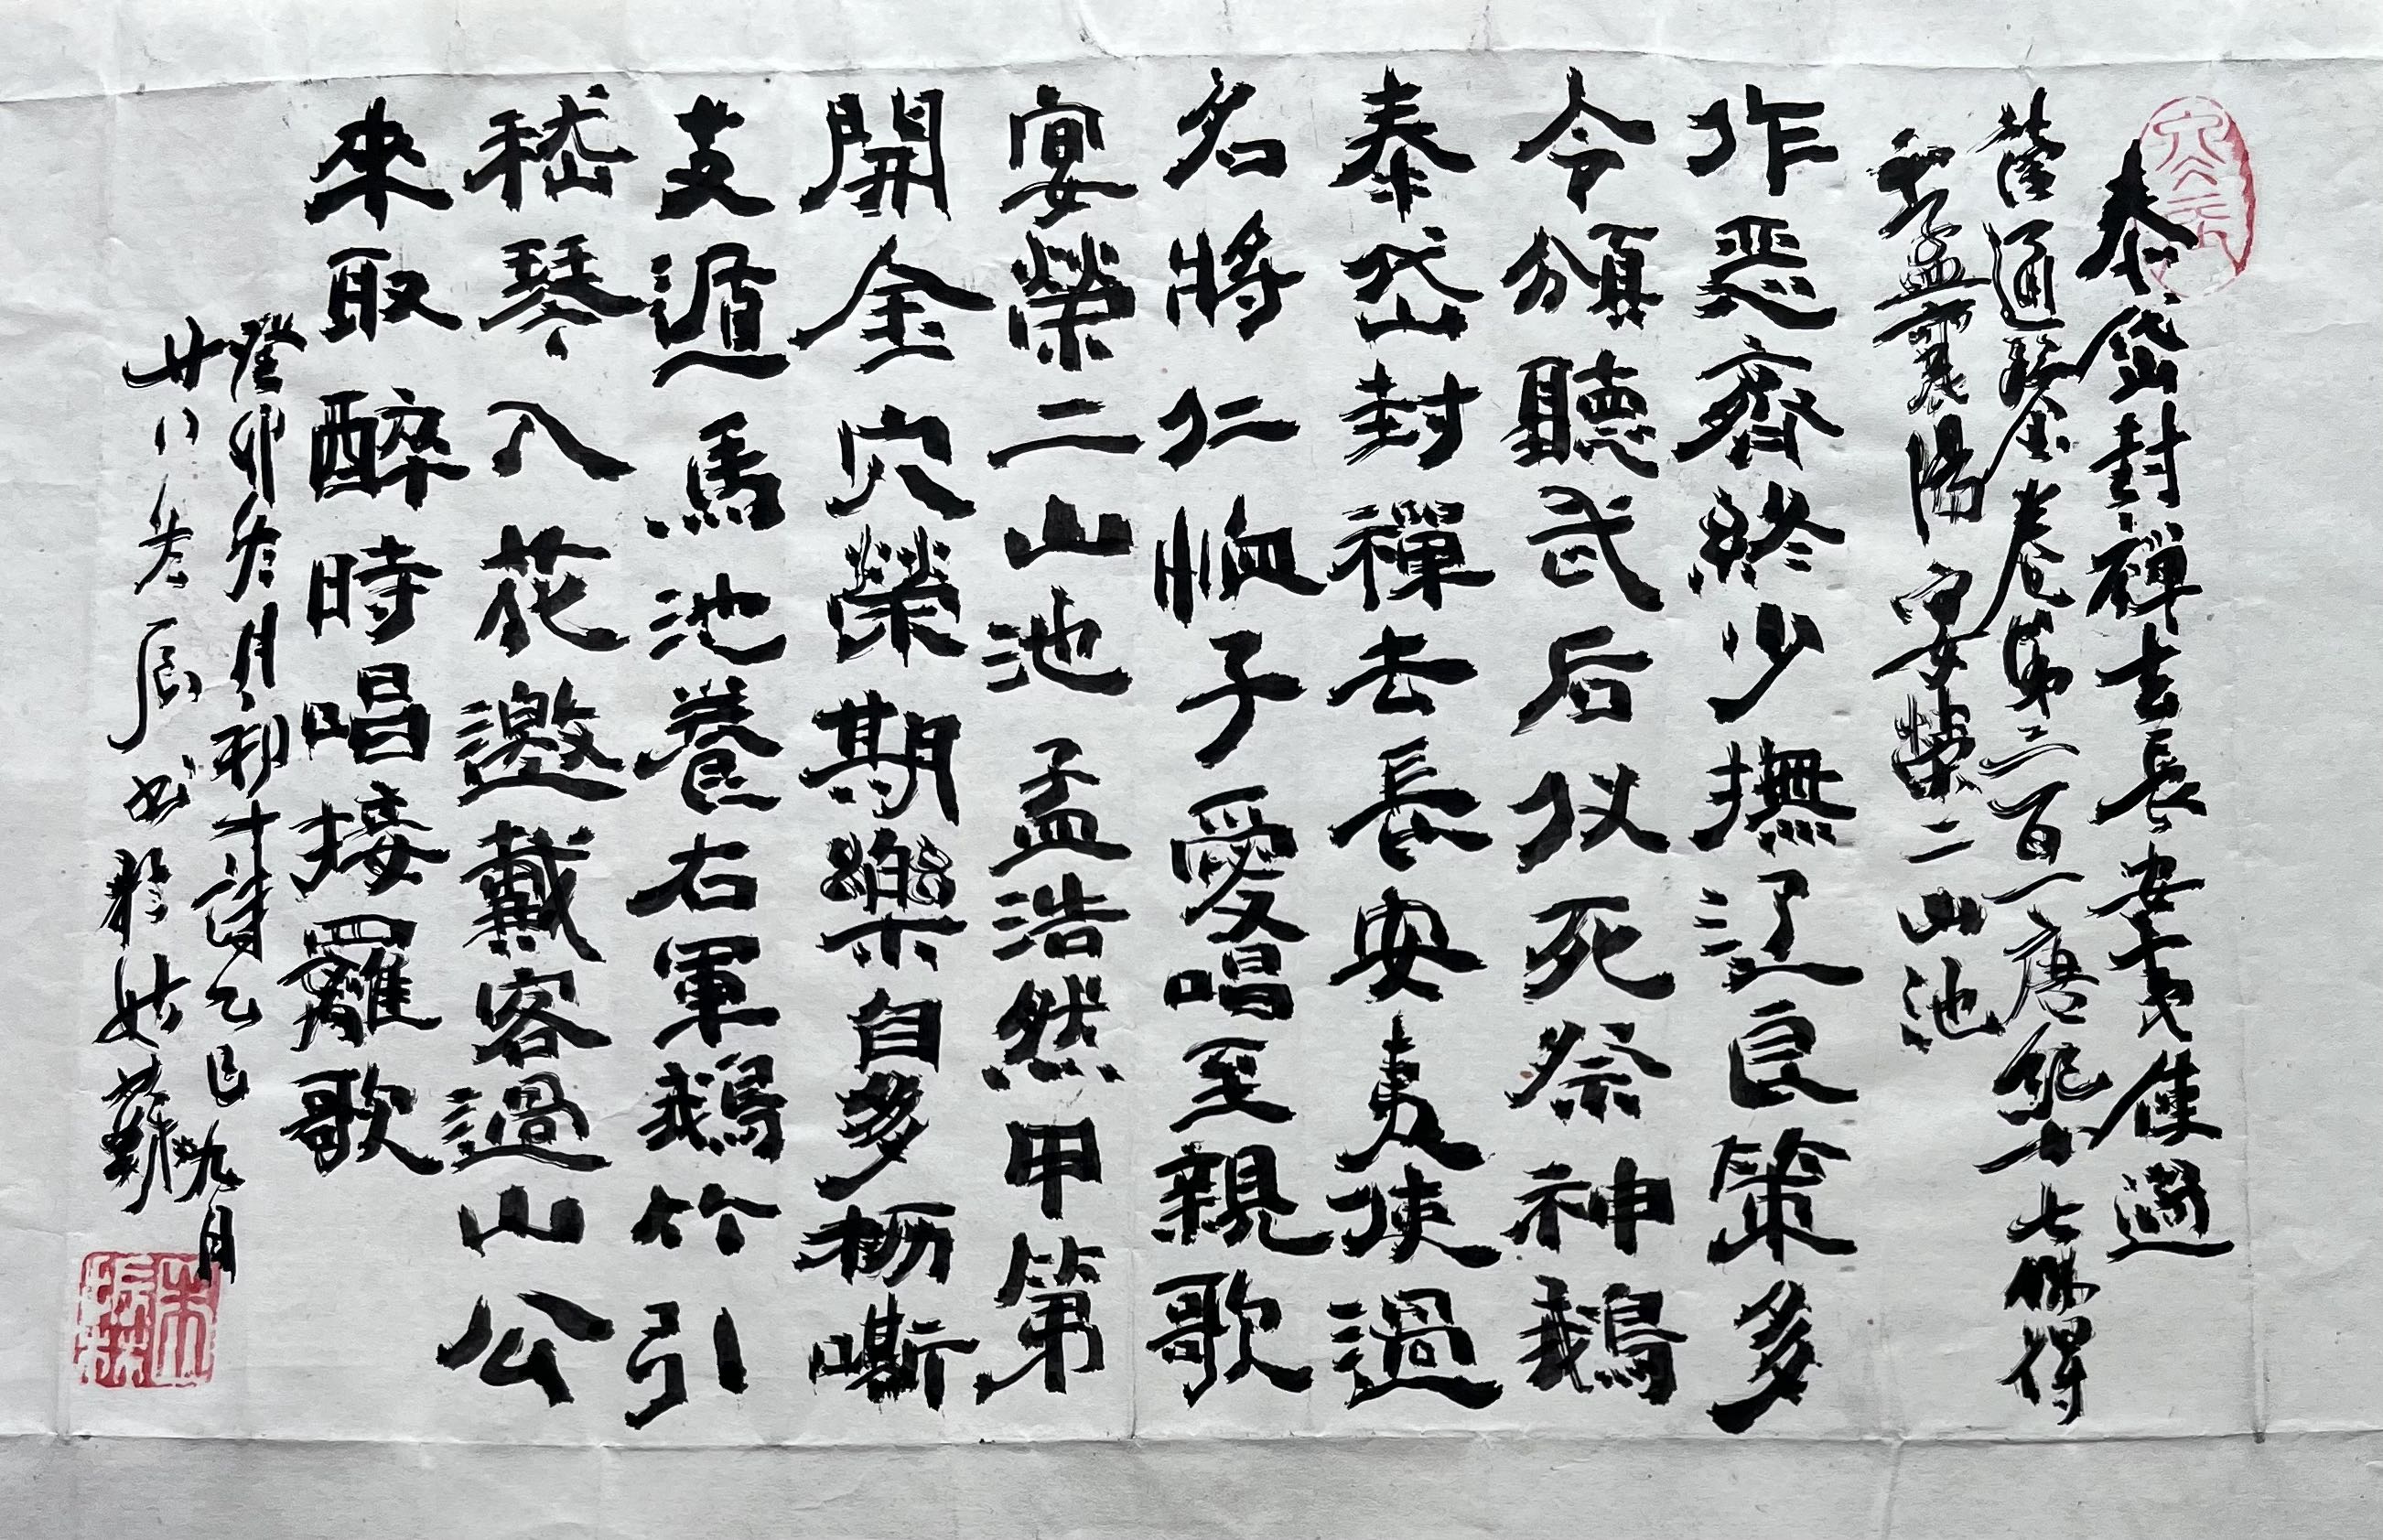 泰岱封禪去長安夷使過
藍通鑒卷第二百一唐紀十七偶得
和孟襄陽宴榮二山池
作惡齊終少撫辽良策多
今頒聽武后仪死祭神鵝
泰岱封禪去長安夷使過
名將仁恤子愛唱至親歌
宴榮二山池孟浩然甲第
開金穴榮期樂自多枥嘶
支遁馬池養右軍鵝竹引
嵇琴入花邀戴客過山公
來取醉時唱接羅歌
癸卯冬月初十詩乙巳九月
廿八冬辰書於姑蘇